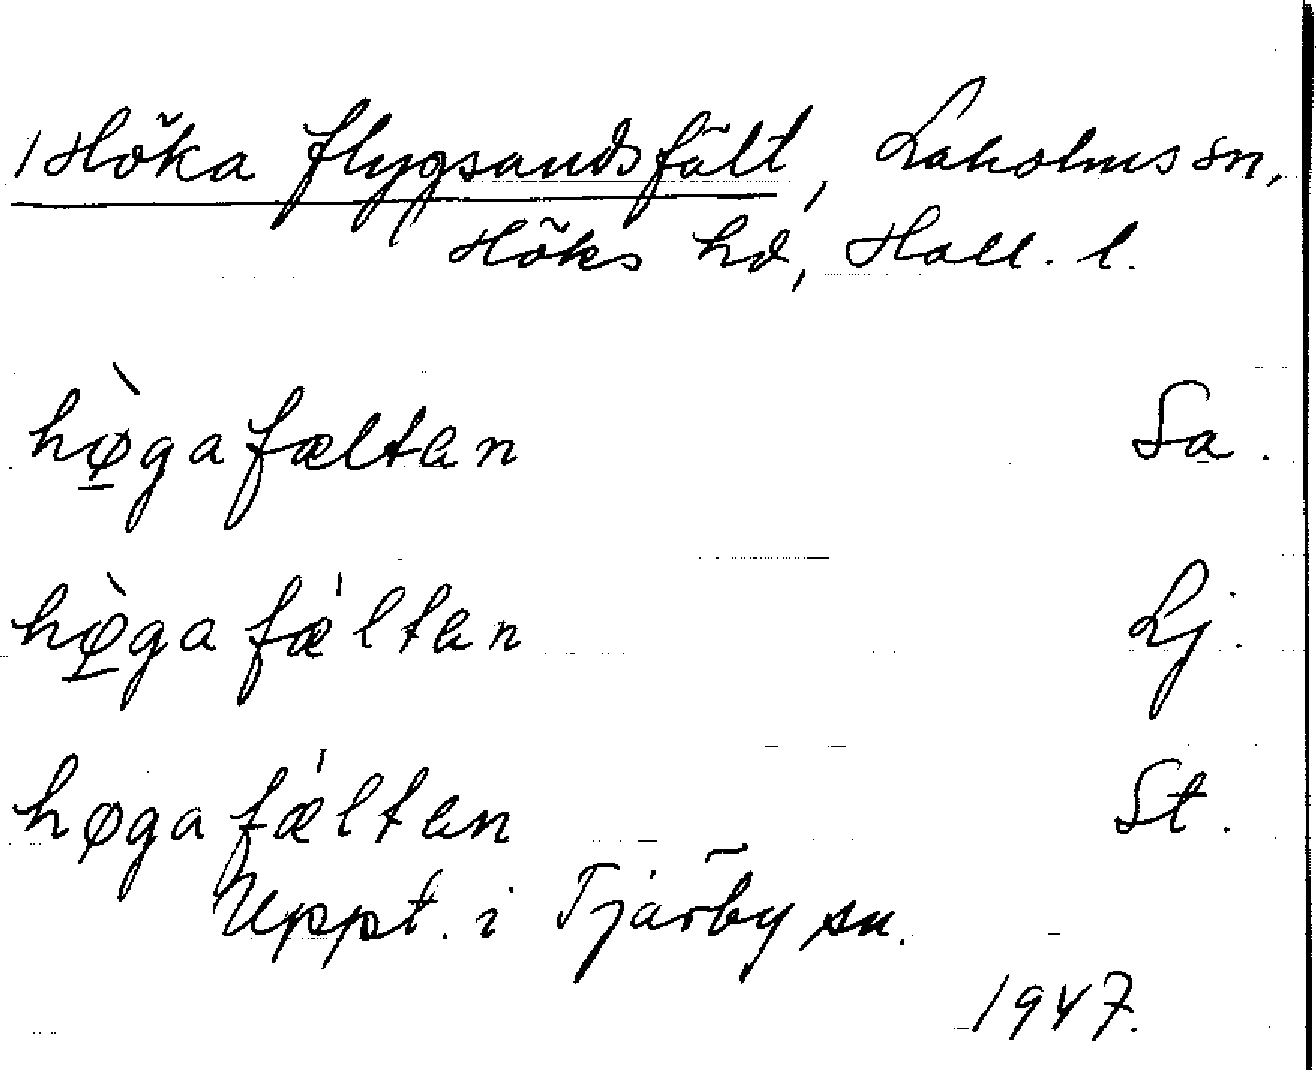 Höka flygsandsfält, Laholms sn,
Höks hd, Hall. l.
hø̀gafæltan Sa.
hø̀gafæ̍ltan Lj.
høgafæ̍ltan St.
Uppt. i Tjärby sn.
1947.